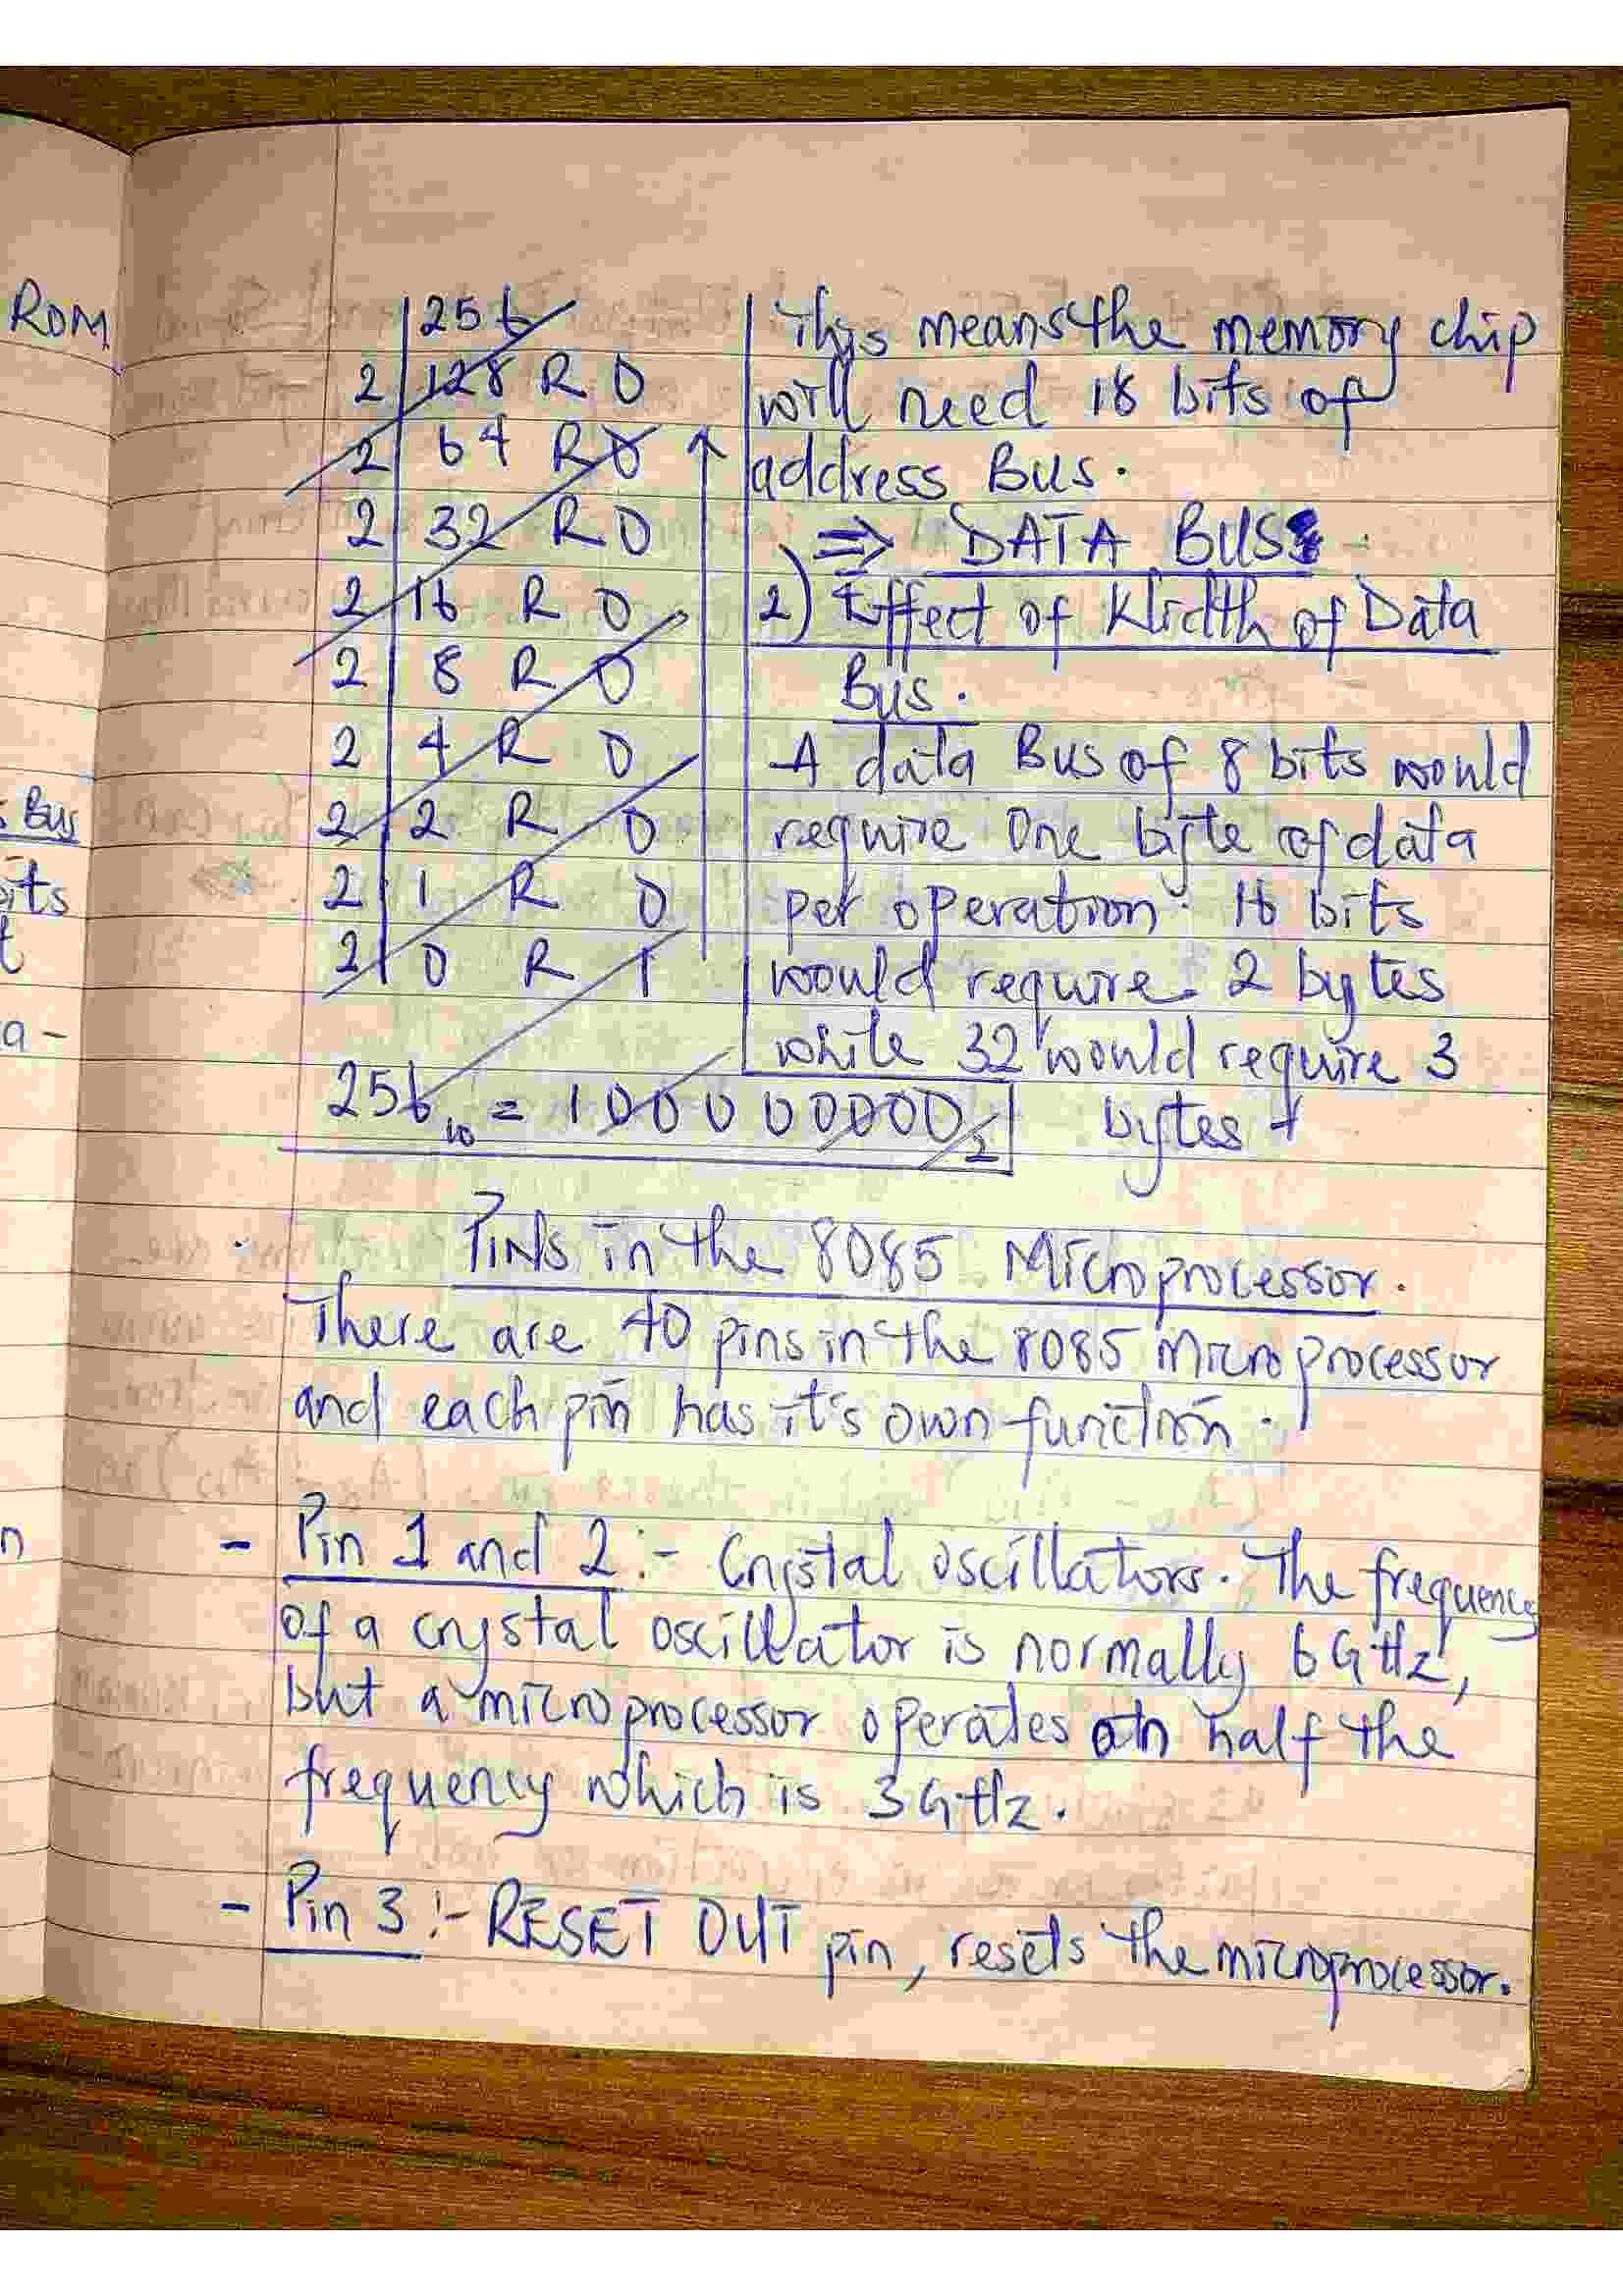 ROM
s Bus
its
t
a-
n
256
2 128 R 0
2 64 R 0
2 32 R 0
2 16 R 0
2 8 R 0
2 4 R 0
2 2 R 0
2 1 R 0
2 0 R 1
256₁₀ = 100000000₂
This means the memory chip
will need 18 bits of
address Bus.
⇒ DATA BUS
2) Effect of Width of Data
Bus.
A data Bus of 8 bits would
require One byte of data
per operation. 16 bits
would require 2 bytes
while 32 would require 3
bytes +
PINs in the 8085 Microprocessor.
There are 40 pins in the 8085 microprocessor
and each pin has it's own function.
- Pin 1 and 2 :- Crystal oscillators. The frequency
of a crystal oscillator is normally 6GHz,
but a microprocessor operates on half the
frequency which is 3GHz.
- Pin 3 :- RESET OUT pin, resets the microprocessor.